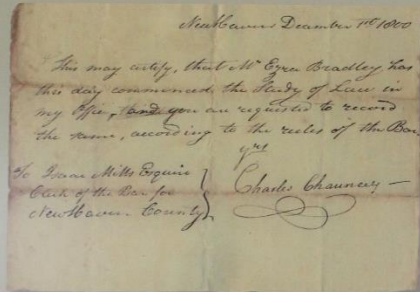 New Haven December 1st 1800
This may certify, that Mr Ezra Bradley has
this day commenced the Study of Law in
my office, and you are requested to record
the same, according to the rules of the Bar,
yrs
To Isaac Mills Esquire
Clerk of the Bar for
New Haven County
Charles Chauncey